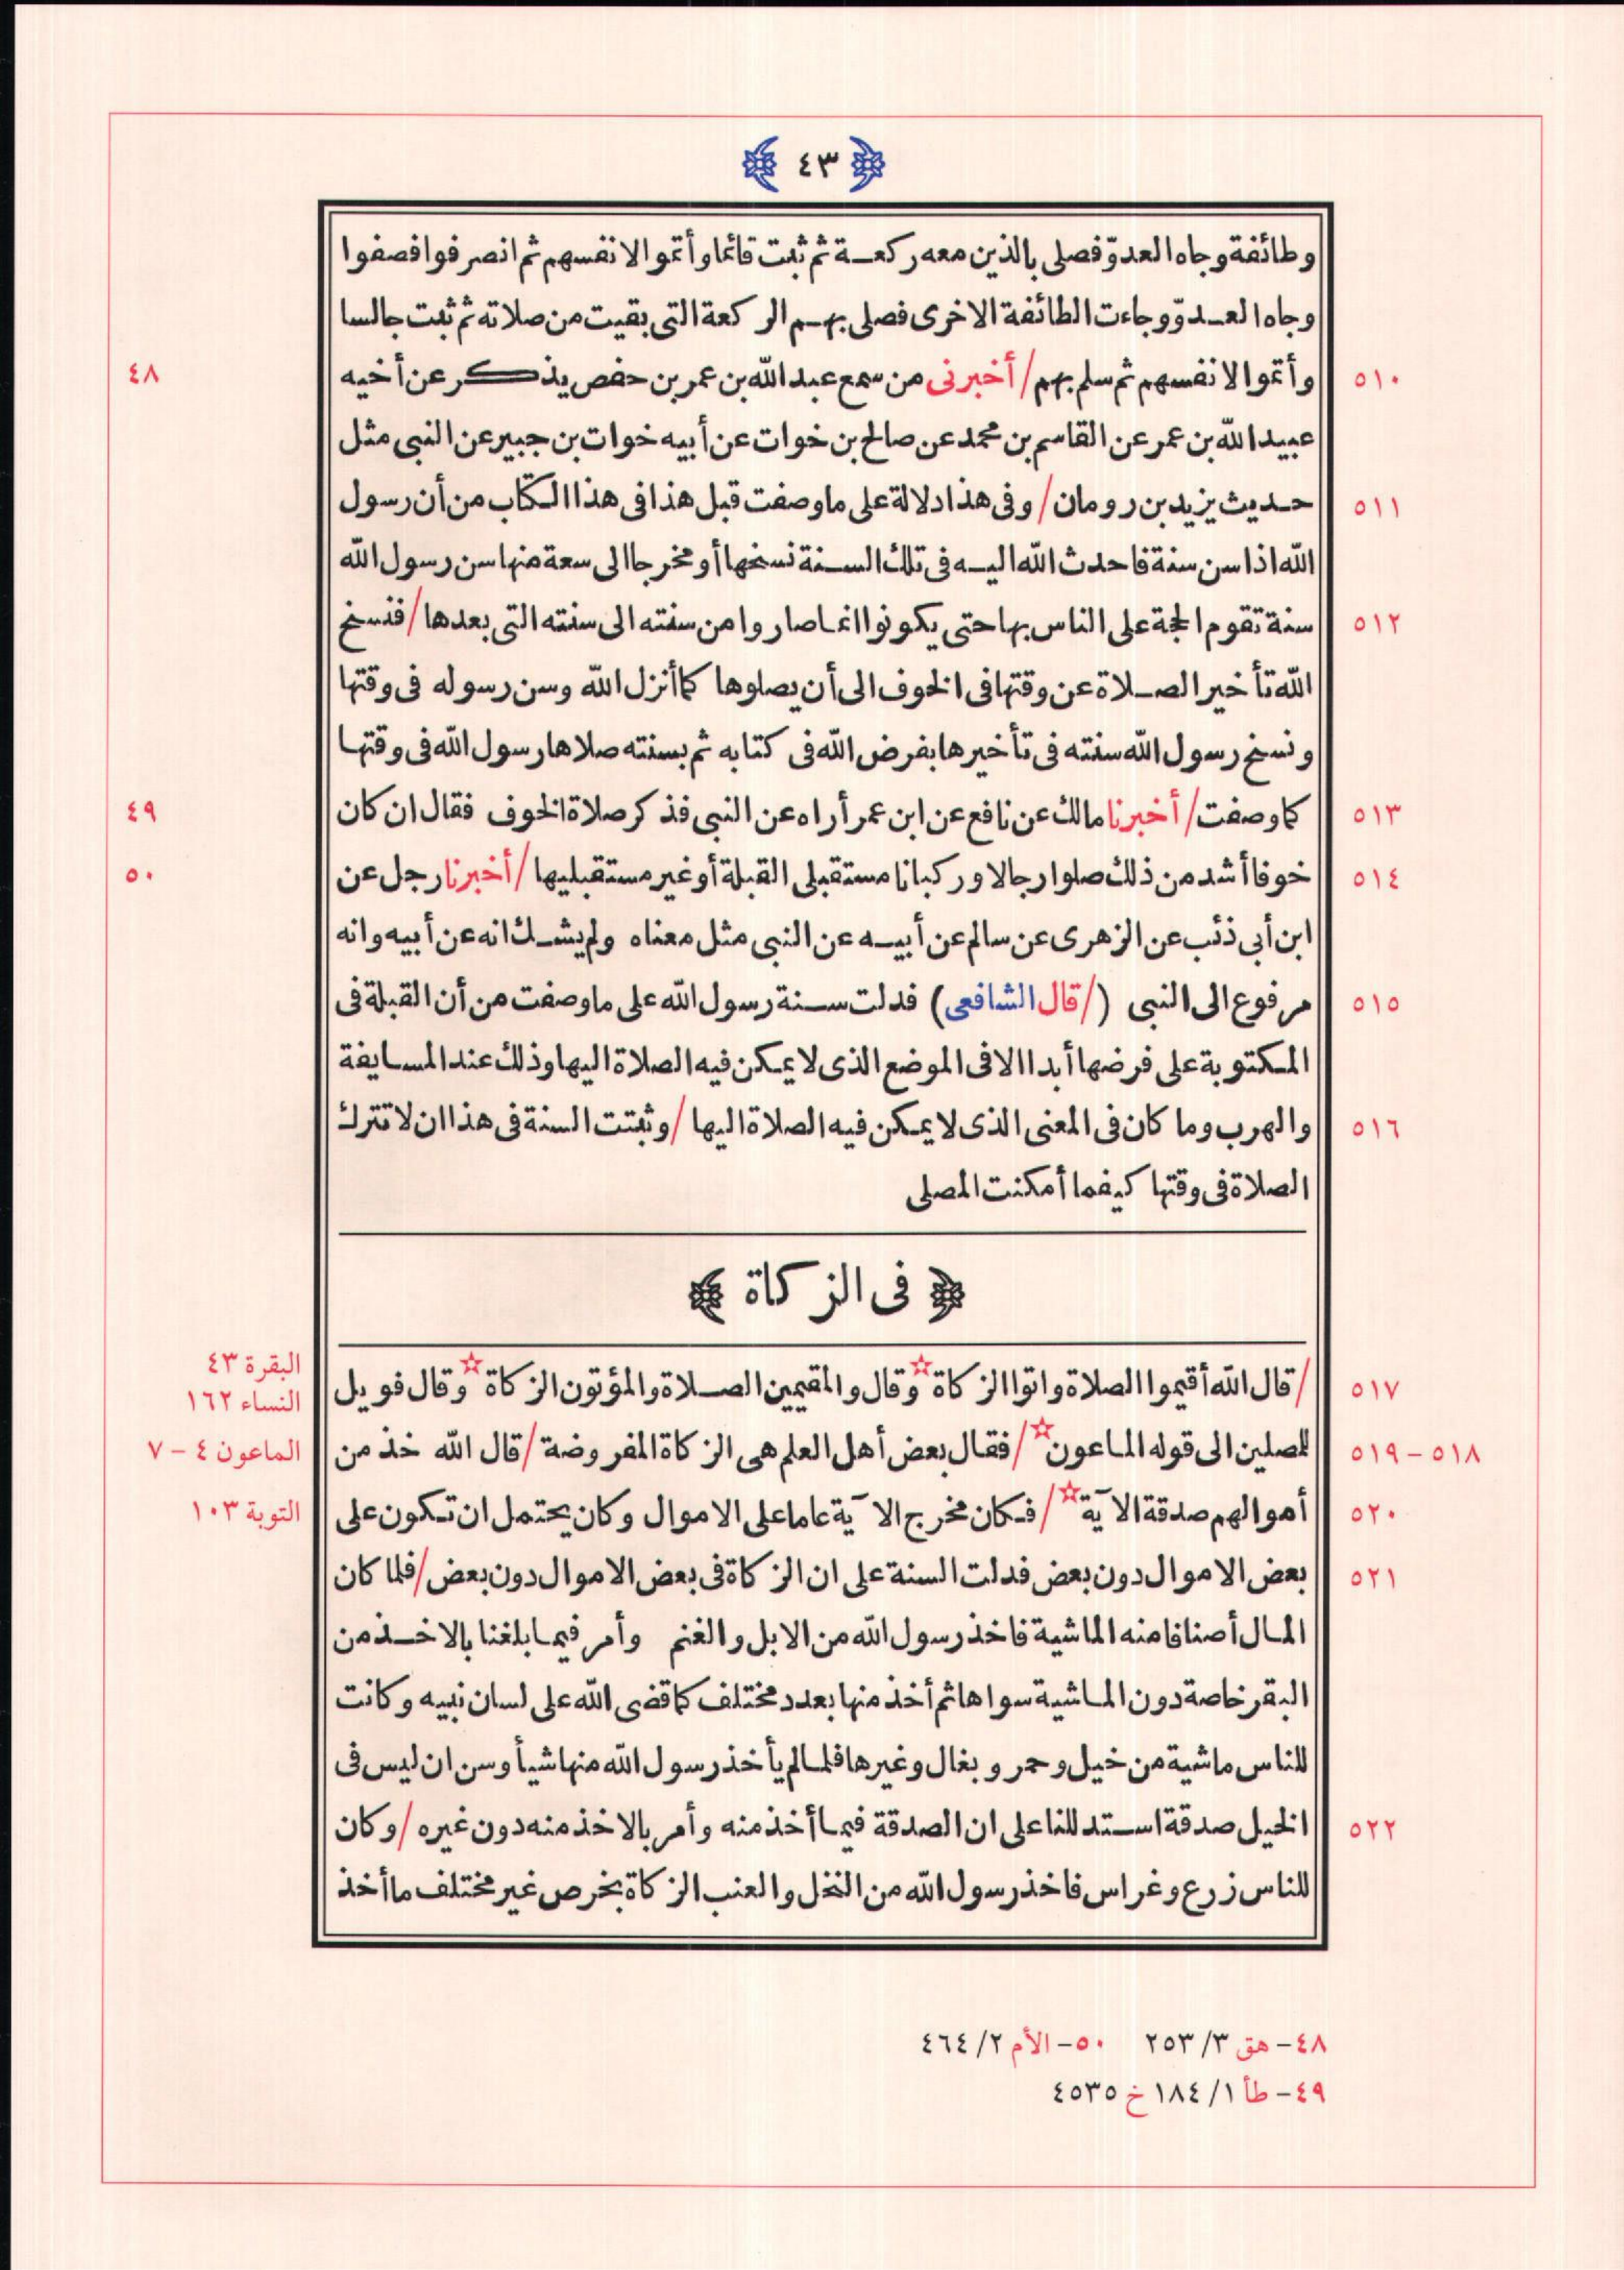 ﴿ ٤٣ ﴾
وطائفة وجاه العدوّ فصلى بالذين معه ركعة ثم ثبت قائما وأتموا لانفسهم ثم انصرفوا فصفوا
وجاه العدوّ وجاءت الطائفة الاخرى فصلى بهم الركعة التى بقيت من صلاته ثم ثبت جالسا
٥١٠ وأتموا لانفسهم ثم سلم بهم / أخبرنى من سمع عبد الله بن عمر بن حفص يذكر عن أخيه ٤٨
عبيد الله بن عمر عن القاسم بن محمد عن صالح بن خوات عن أبيه خوات بن جبير عن النبى مثل
٥١١ حديث يزيد بن رومان / وفى هذا دلالة على ما وصفت قبل هذا فى هذا الكتاب من أن رسول
الله اذا سن سنة فاحدث الله اليه فى تلك السنة نسخها أو مخرجا الى سعة منها سن رسول الله
٥١٢ سنة تقوم الحجة على الناس بها حتى يكونوا انما صاروا من سنته الى سنته التى بعدها / فنسخ
الله تأخير الصلاة عن وقتها فى الخوف الى أن يصلوها كما أنزل الله وسن رسوله فى وقتها
ونسخ رسول الله سنته فى تأخيرها بفرض الله فى كتابه ثم بسنته صلاها رسول الله فى وقتها
٥١٣ كما وصفت / أخبرنا مالك عن نافع عن ابن عمر أراه عن النبى فذكر صلاة الخوف فقال ان كان ٤٩
٥١٤ خوفا أشد من ذلك صلوا رجالا وركبانا مستقبلى القبلة أو غير مستقبليها / أخبرنا رجل عن ٥٠
ابن أبى ذئب عن الزهرى عن سالم عن أبيه عن النبى مثل معناه ولم يشك انه عن أبيه وانه
٥١٥ مرفوع الى النبى (/ قال الشافعى) فدلت سنة رسول الله على ما وصفت من أن القبلة فى
المكتوبة على فرضها أبدا الا فى الموضع الذى لا يمكن فيه الصلاة اليها وذلك عند المسايفة
٥١٦ والهرب وما كان فى المعنى الذى لا يمكن فيه الصلاة اليها / وثبتت السنة فى هذا ان لا تترك
الصلاة فى وقتها كيفما أمكنت المصلى
﴿ فى الزكاة ﴾
البقرة ٤٣
٥١٧ / قال الله أقيموا الصلاة واتوا الزكاة ☆ وقال والمقيمين الصلاة والمؤتون الزكاة ☆ وقال فويل النساء ١٦٢
٥١٨ – ٥١٩ للمصلين الى قوله الماعون ☆ / فقال بعض أهل العلم هى الزكاة المفروضة / قال الله خذ من الماعون ٤ – ٧
٥٢٠ أموالهم صدقة الآية ☆ / فكان مخرج الآية عاما على الاموال وكان يحتمل ان تكون على التوبة ١٠٣
٥٢١ بعض الاموال دون بعض فدلت السنة على ان الزكاة فى بعض الاموال دون بعض / فلما كان
المال أصنافا منه الماشية فاخذ رسول الله من الابل والغنم وأمر فيما بلغنا بالاخذ من
البقر خاصة دون الماشية سواها ثم أخذ منها بعدد مختلف كما قضى الله على لسان نبيه وكانت
للناس ماشية من خيل وحمر وبغال وغيرها فلما لم يأخذ رسول الله منها شيأ وسن ان ليس فى
٥٢٢ الخيل صدقة استدللنا على ان الصدقة فيما أخذ منه وأمر بالاخذ منه دون غيره / وكان
للناس زرع وغراس فاخذ رسول الله من النخل والعنب الزكاة بخرص غير مختلف ما أخذ
٤٨ – هق ٣ / ٢٥٣ ٥٠ – الأم ٢ / ٤٦٤
٤٩ – طأ ١ / ١٨٤ خ ٤٥٣٥